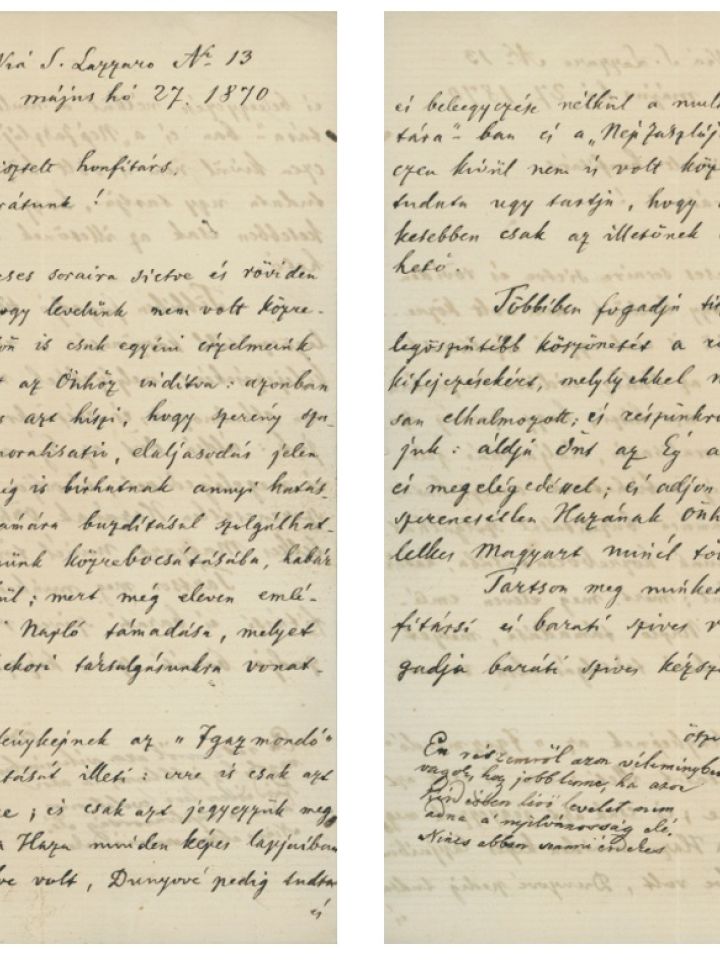 Viá S. Lazzaro Nr 13
május hó 27. 1870
isztelt honfitárs,
rátunk!
eses soraira sietve és röviden
hogy levelünk nem volt közre-
is csak egyéni érzelmeink
t az Önhöz inditva: azonban
s azt hiszi, hogy szerény sza-
moralisatio, elaljasodás jelen
ég is birhatnak annyi hatás-
ámára buzditásul szolgálhat-
ünk közrebocsátásába, habár
ül; mert még eleven emlé-
i Napló támadása, melyet
ckori társalgásunkra vonat-
ényképnek az "Igazmondó"
tását illeti: erre is csak azt
e; és csak azt jegyezzük meg
a Haza minden képes lapjaiban
ve volt, Dunyové pedig tudta
és
és beleegyezése nélkül a mult
tára"-ban és a "Nép Zászlój
ezen kivül nem is volt köz
tudata ugy tartja, hogy
kesebben csak az illetőnek
hető.
Többiben fogadja tis
legőszintébb köszönetét a
kifejezésekért, melylyekkel
san elhalmozott; és részünkrő
juk: áldja Önt az Ég a
és megelégedéssel; és adjon
szerencsétlen Hazának Önh
lelkes Magyart minél töb
Tartson meg minket
fitársi és baráti szives
gadja baráti szives kézszo
őszi
En részemről azon véleményben
vagyok, hogy jobb lenne, ha azon
levelet nem
adna a nyilvánosság elé.
Nincs abban semmi érdekes